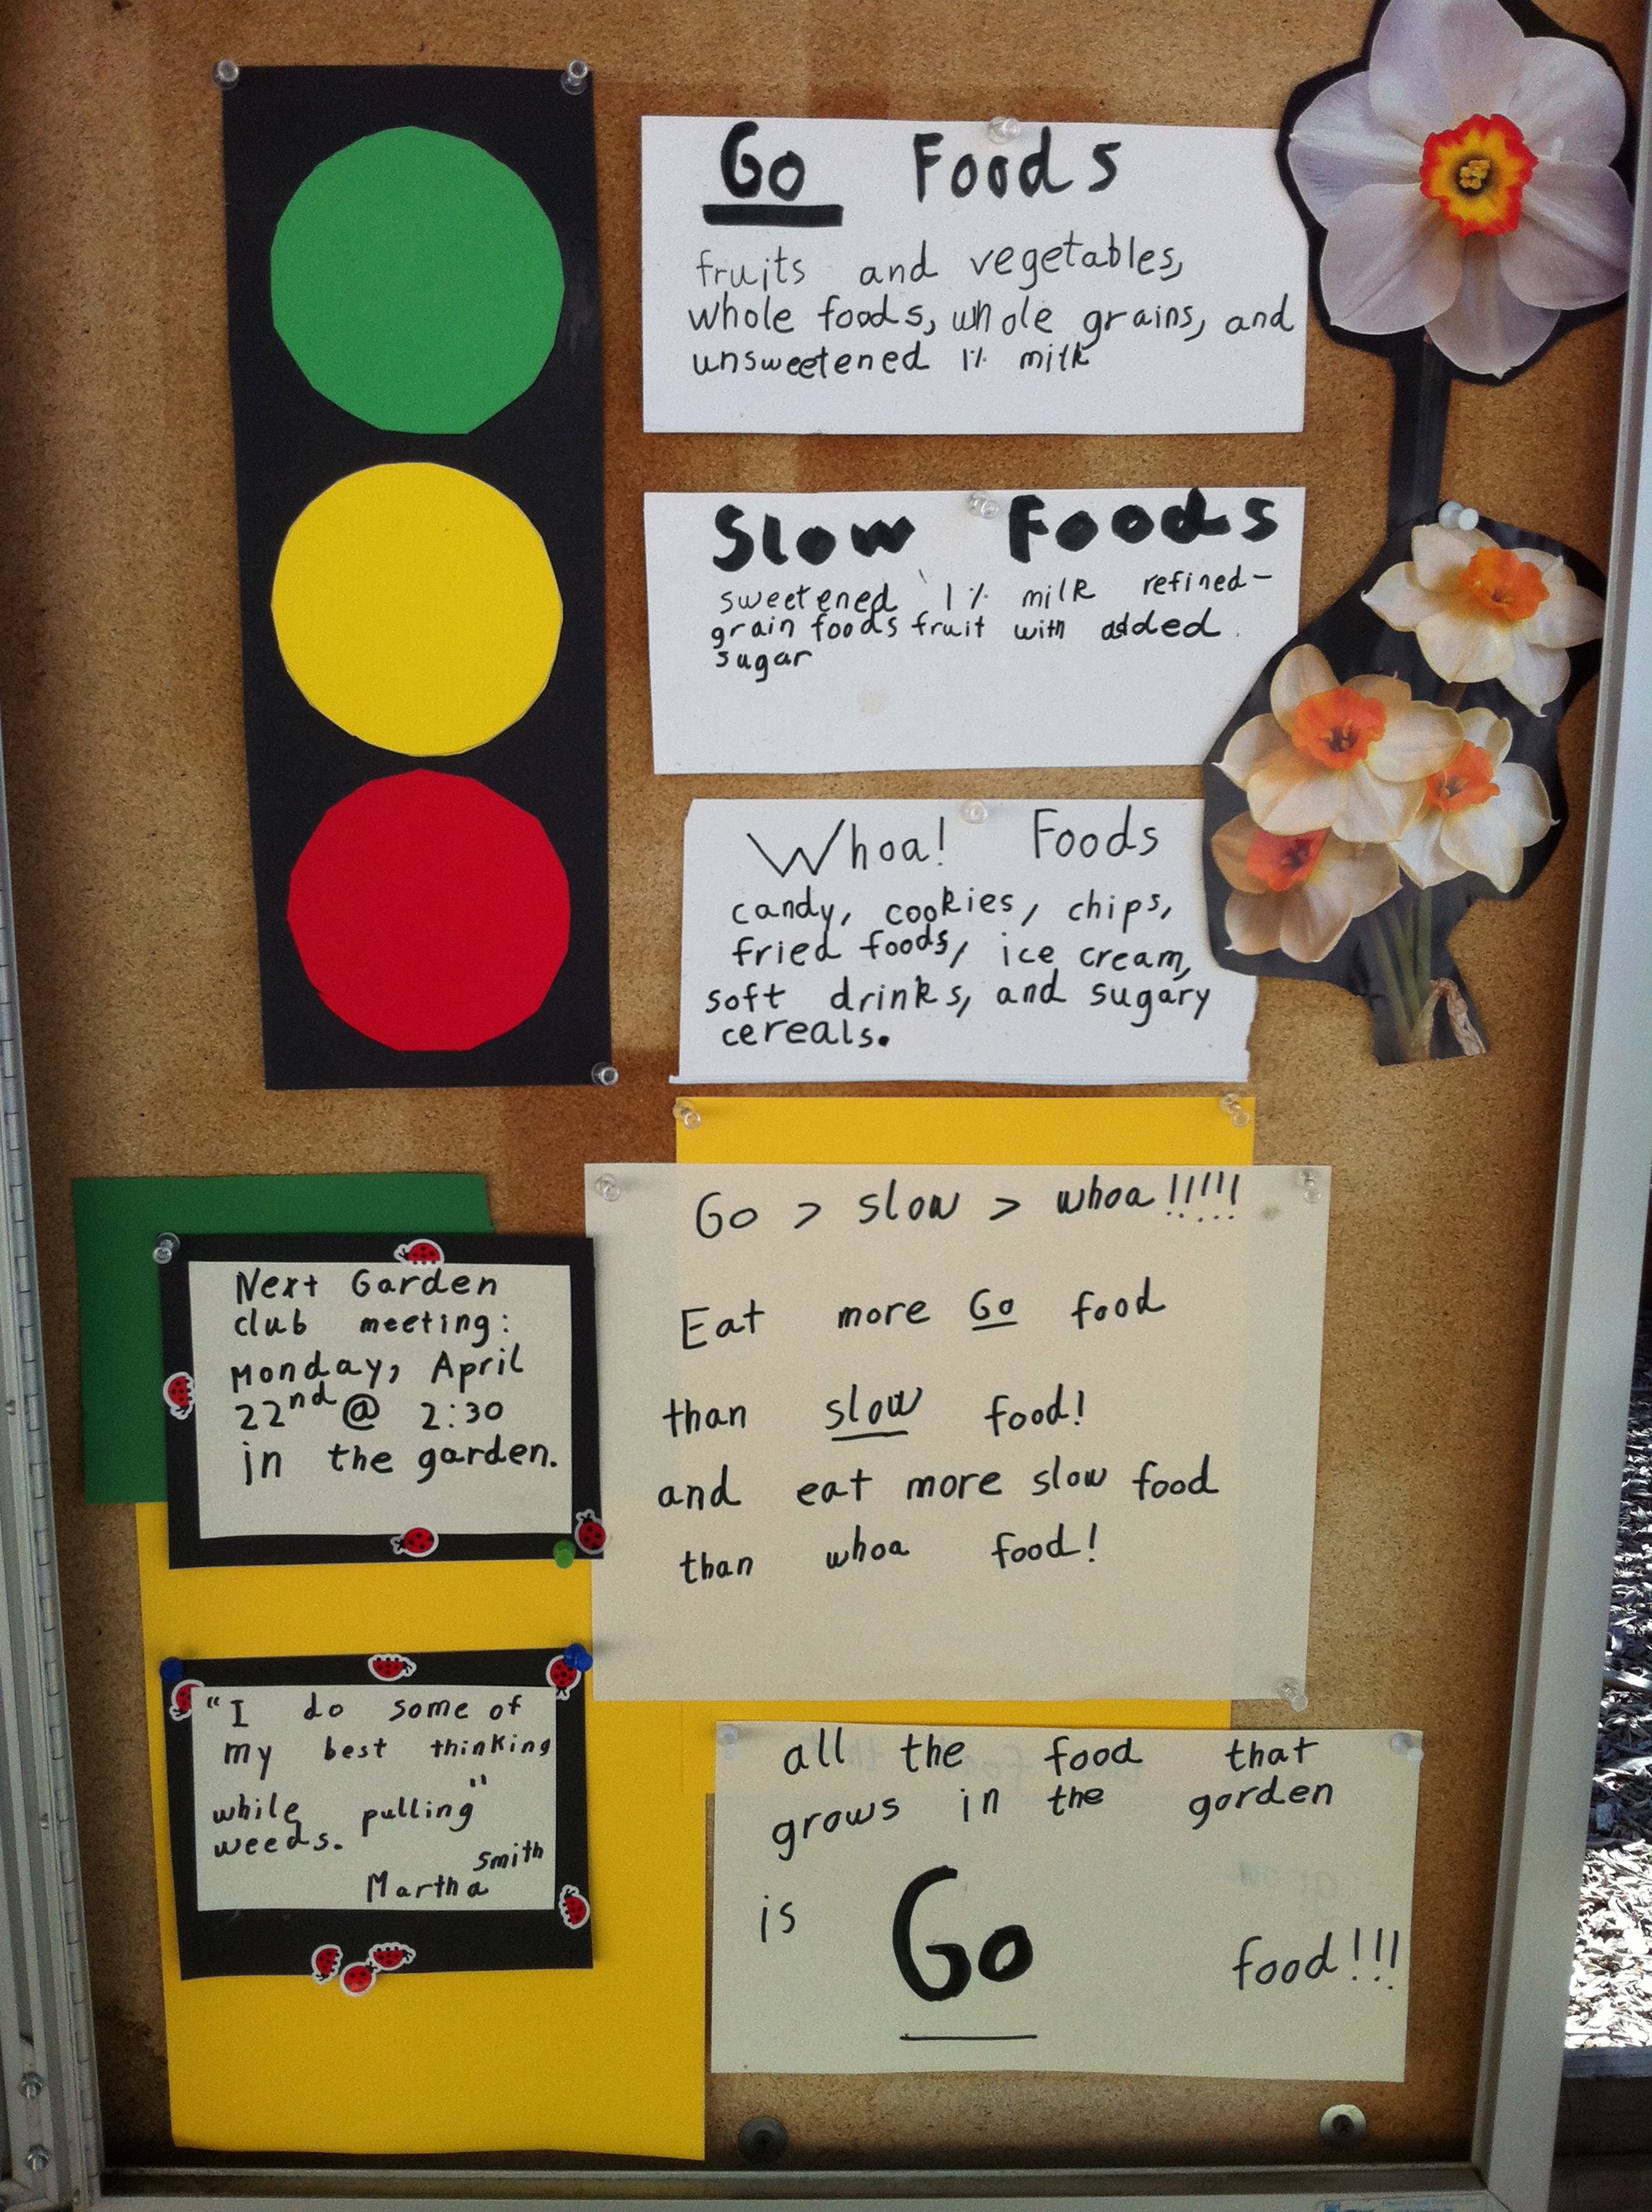 Go Foods
fruits and vegetables,
whole foods, whole grains, and
unsweetened 1% milk
Slow Foods
sweetened 1% milk refined-
grain foods fruit with added
sugar
Whoa! Foods
candy, cookies, chips,
fried foods, ice cream,
soft drinks, and sugary
cereals.
Go > slow > whoa!!!!!
Eat more Go food
than slow food!
and eat more slow food
than whoa food!
Next Garden
club meeting:
Monday, April
22nd @ 2:30
in the garden.
"I do some of
my best thinking
while pulling"
weeds.
Smith
Martha
all the food that
grows in the garden
is Go food!!!